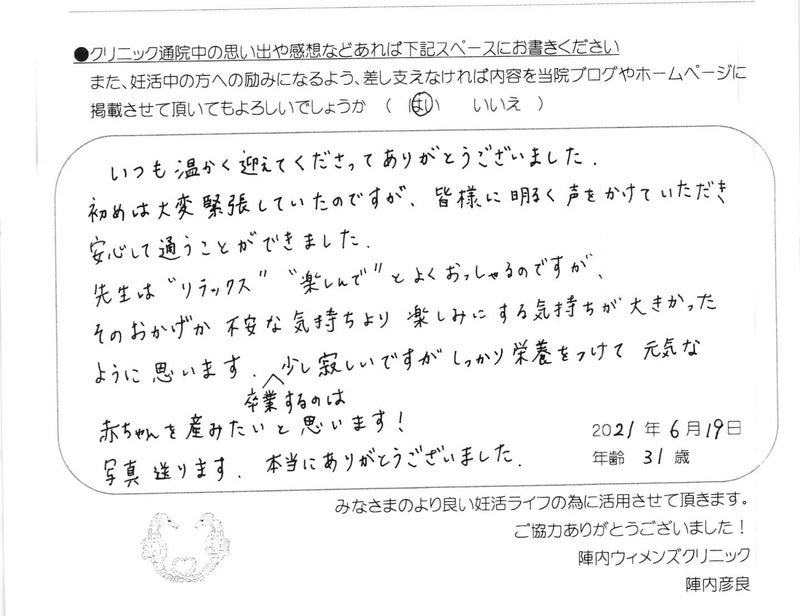 ●クリニック通院中の思い出や感想などあれば下記スペースにお書きください
また、妊活中の方への励みになるよう、差し支えなければ内容を当院ブログやホームページに
掲載させて頂いてもよろしいでしょうか （ はい いいえ ）
いつも温かく迎えてくださってありがとうございました.
初めは大変緊張していたのですが、皆様に明るく声をかけていただき
安心して通うことができました.
先生は"リラックス" "楽しんで"とよくおっしゃるのですが、
そのおかげか不安な気持ちより楽しみにする気持ちが大きかった
ように思います. 少し寂しいですがしっかり栄養をつけて元気な
卒業するのは
赤ちゃんを産みたいと思います!
2021年6月19日
写真送ります. 本当にありがとうございました.
年齢 31歳
みなさまのより良い妊活ライフの為に活用させて頂きます。
ご協力ありがとうございました！
陣内ウィメンズクリニック
陣内彦良